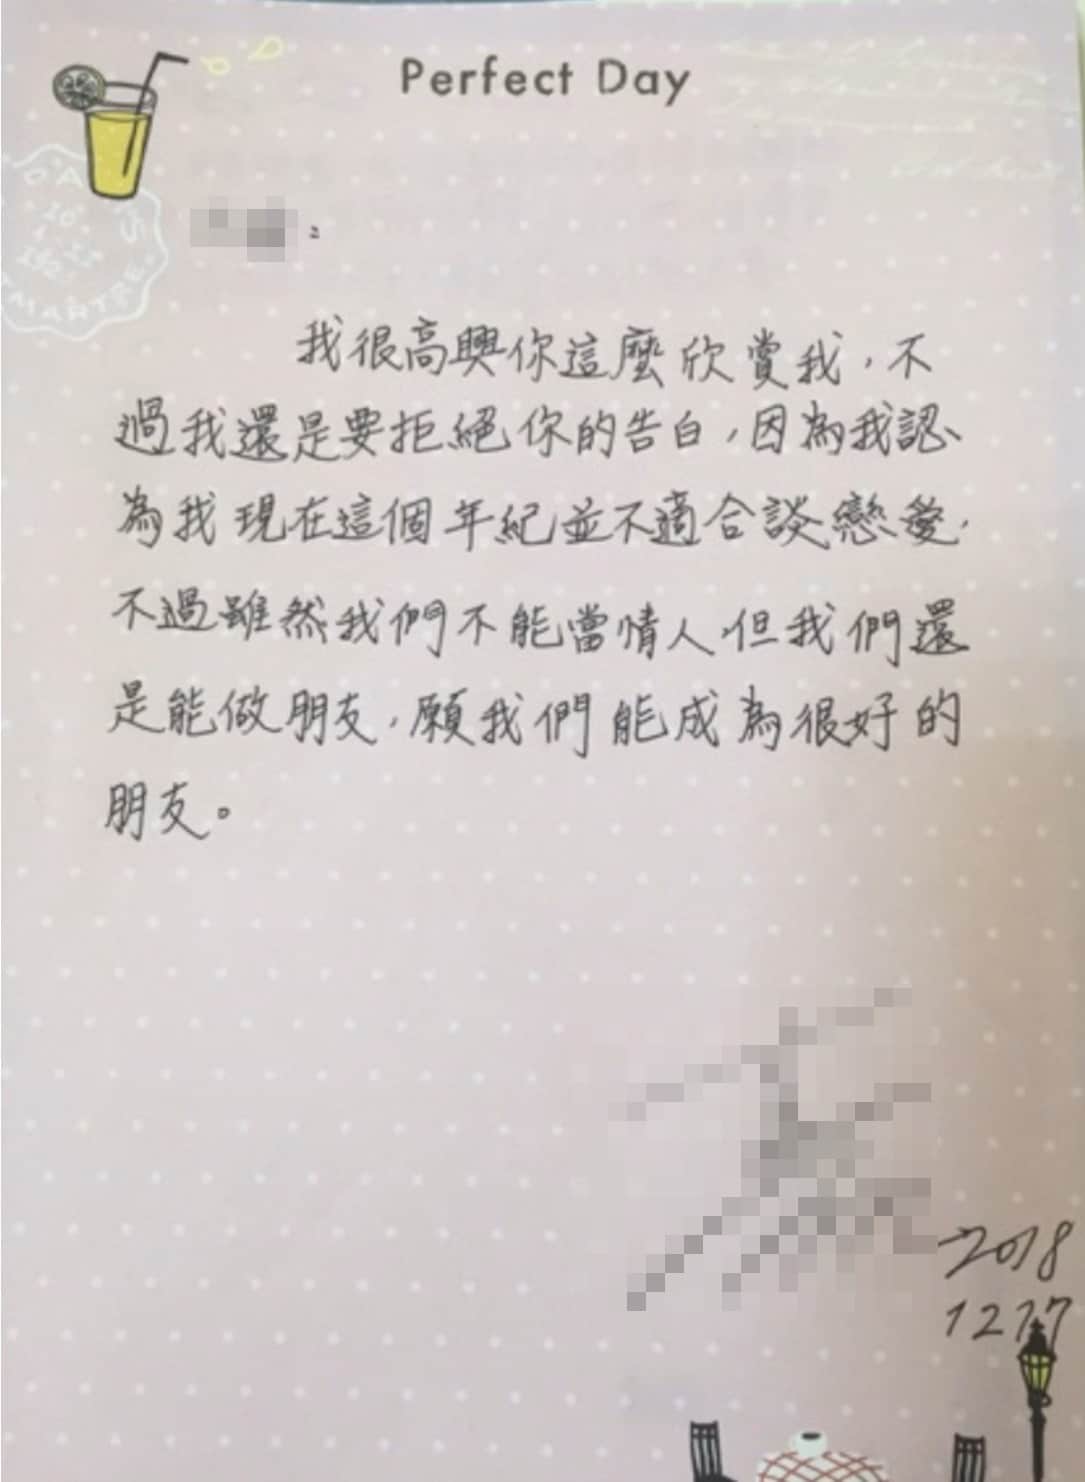 Perfect Day
:
我很高興你這麼欣賞我，不
過我還是要拒絕你的告白，因為我認
為我現在這個年紀並不適合談戀愛，
不過雖然我們不能當情人，但我們還
是能做朋友，願我們能成為很好的
朋友。
2018
1217